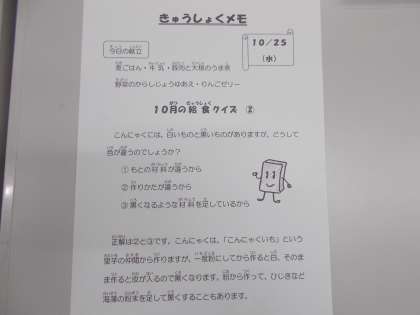 きゅうしょくメモ
10/25
(水)
今日の献立
麦ごはん・牛乳・豚肉と大根のうま煮
野菜のからしじょうゆあえ・りんごゼリー
10月の給食クイズ ②
こんにゃくには、白いものと黒いものがありますが、どうして
色が違うのでしょうか？
①もとの材料が違うから
②作りかたが違うから
③黒くなるような材料を足しているから
正解は②と③です。こんにゃくは、「こんにゃくいも」という
里芋の仲間から作りますが、一度粉にしてから作ると白、そのまま
まま作ると皮が入るので黒くなります。粉から作って、ひじきなど
海藻の粉末を足して黒くすることもあります。